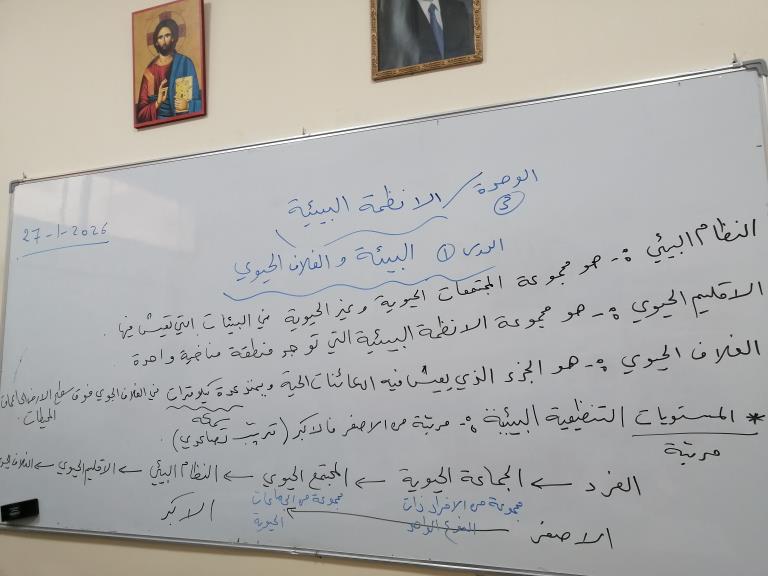 الوحدة / الانظمة البيئية
3
27-1-2026
الدرس 1 البيئة و الغلاف الحيوي
النظام البيئي :- هو مجموعة المجتمعات الحيوية و غير الحيوية في البيئات التي تعيش فيها .
الاقليم الحيوي :- هو مجموعة الانظمة البيئية التي توجد منطقة مناخية واحدة
الغلاف الحيوي :- هو الجزء الذي يعيش فيه الكائنات الحية ويمتد عدة كيلومترات في الغلاف الجوي فوق سطح الارض الى اعماق
المحيطات .
* المستويات التنظيمية البيئية :- مرتبة من الاصغر فالاكبر (ترتيب تصاعدي) .
مرتبة
الفرد ← الجماعة الحيوية ← المجتمع الحيوي ← النظام البيئي ← الاقليم الحيوي ← الغلاف
مجموعة من الافراد ذات
النوع الواحد
مجموعة من الجماعات
الحيوية
الاصغر
الاكبر